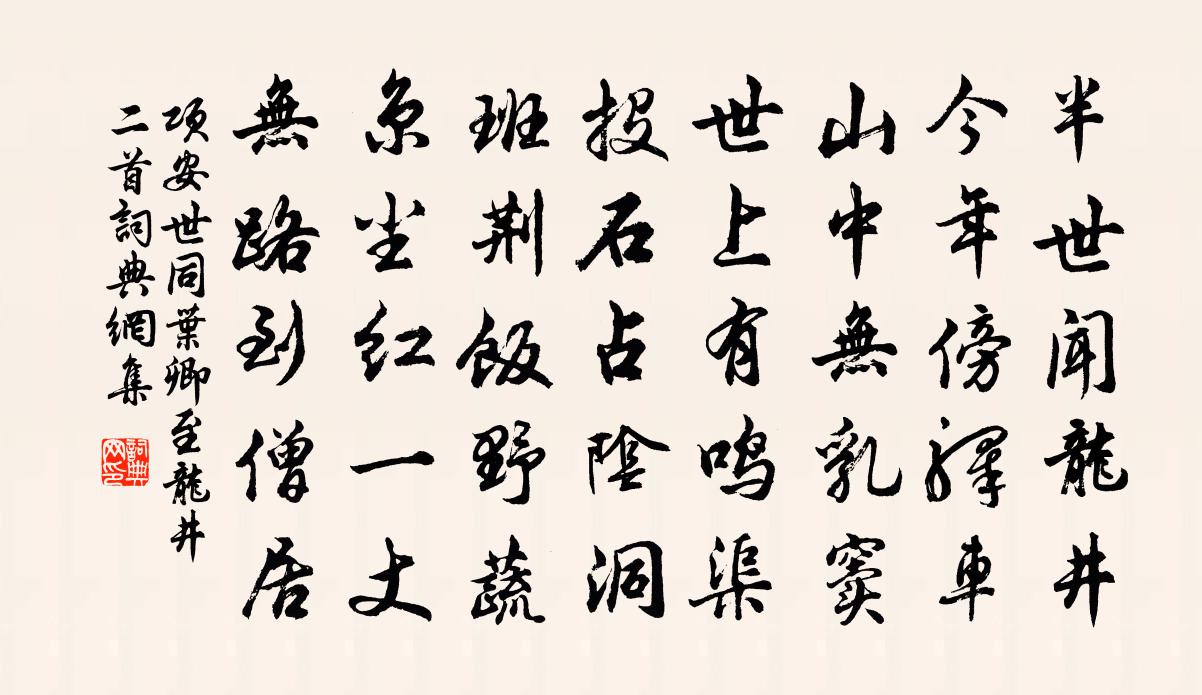 半世聞龍井
今年傍驛車
山中無乳竇
世上有鳴渠
投石占陰洞
班荆飯野蔬
京尘红一丈
無路到僧居
项安世同葉卿至龍井
二首詞典網集
詞典网印